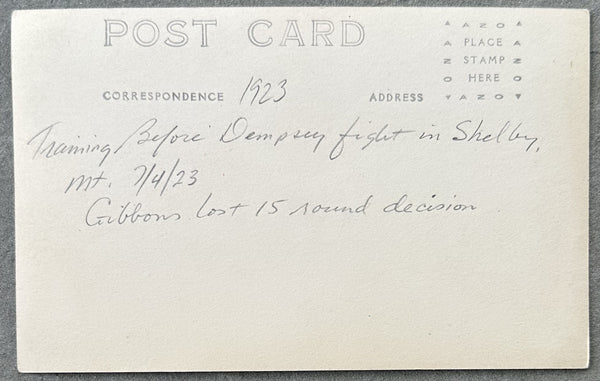 POST CARD
AZO
PLACE
STAMP
HERE
AZO
CORRESPONDENCE 1923 ADDRESS
Training Before Dempsey fight in Shelby,
Mt. 7/4/23
Gibbons lost 15 round decision